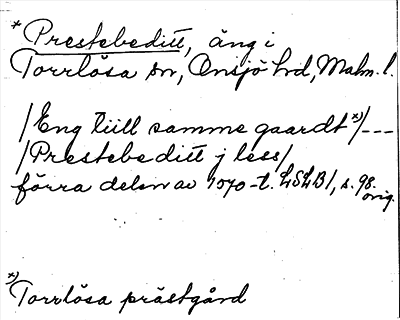 * Prestebeditt, äng i
Torrlösa sn, Onsjö hd, Malm. l.
/Eng tiill samme gaardt *)/---
/Prestebeditt j less/
förra delen av 1570-t. LSLB1, s. 98.
orig.
*) Torrlösa prästgård